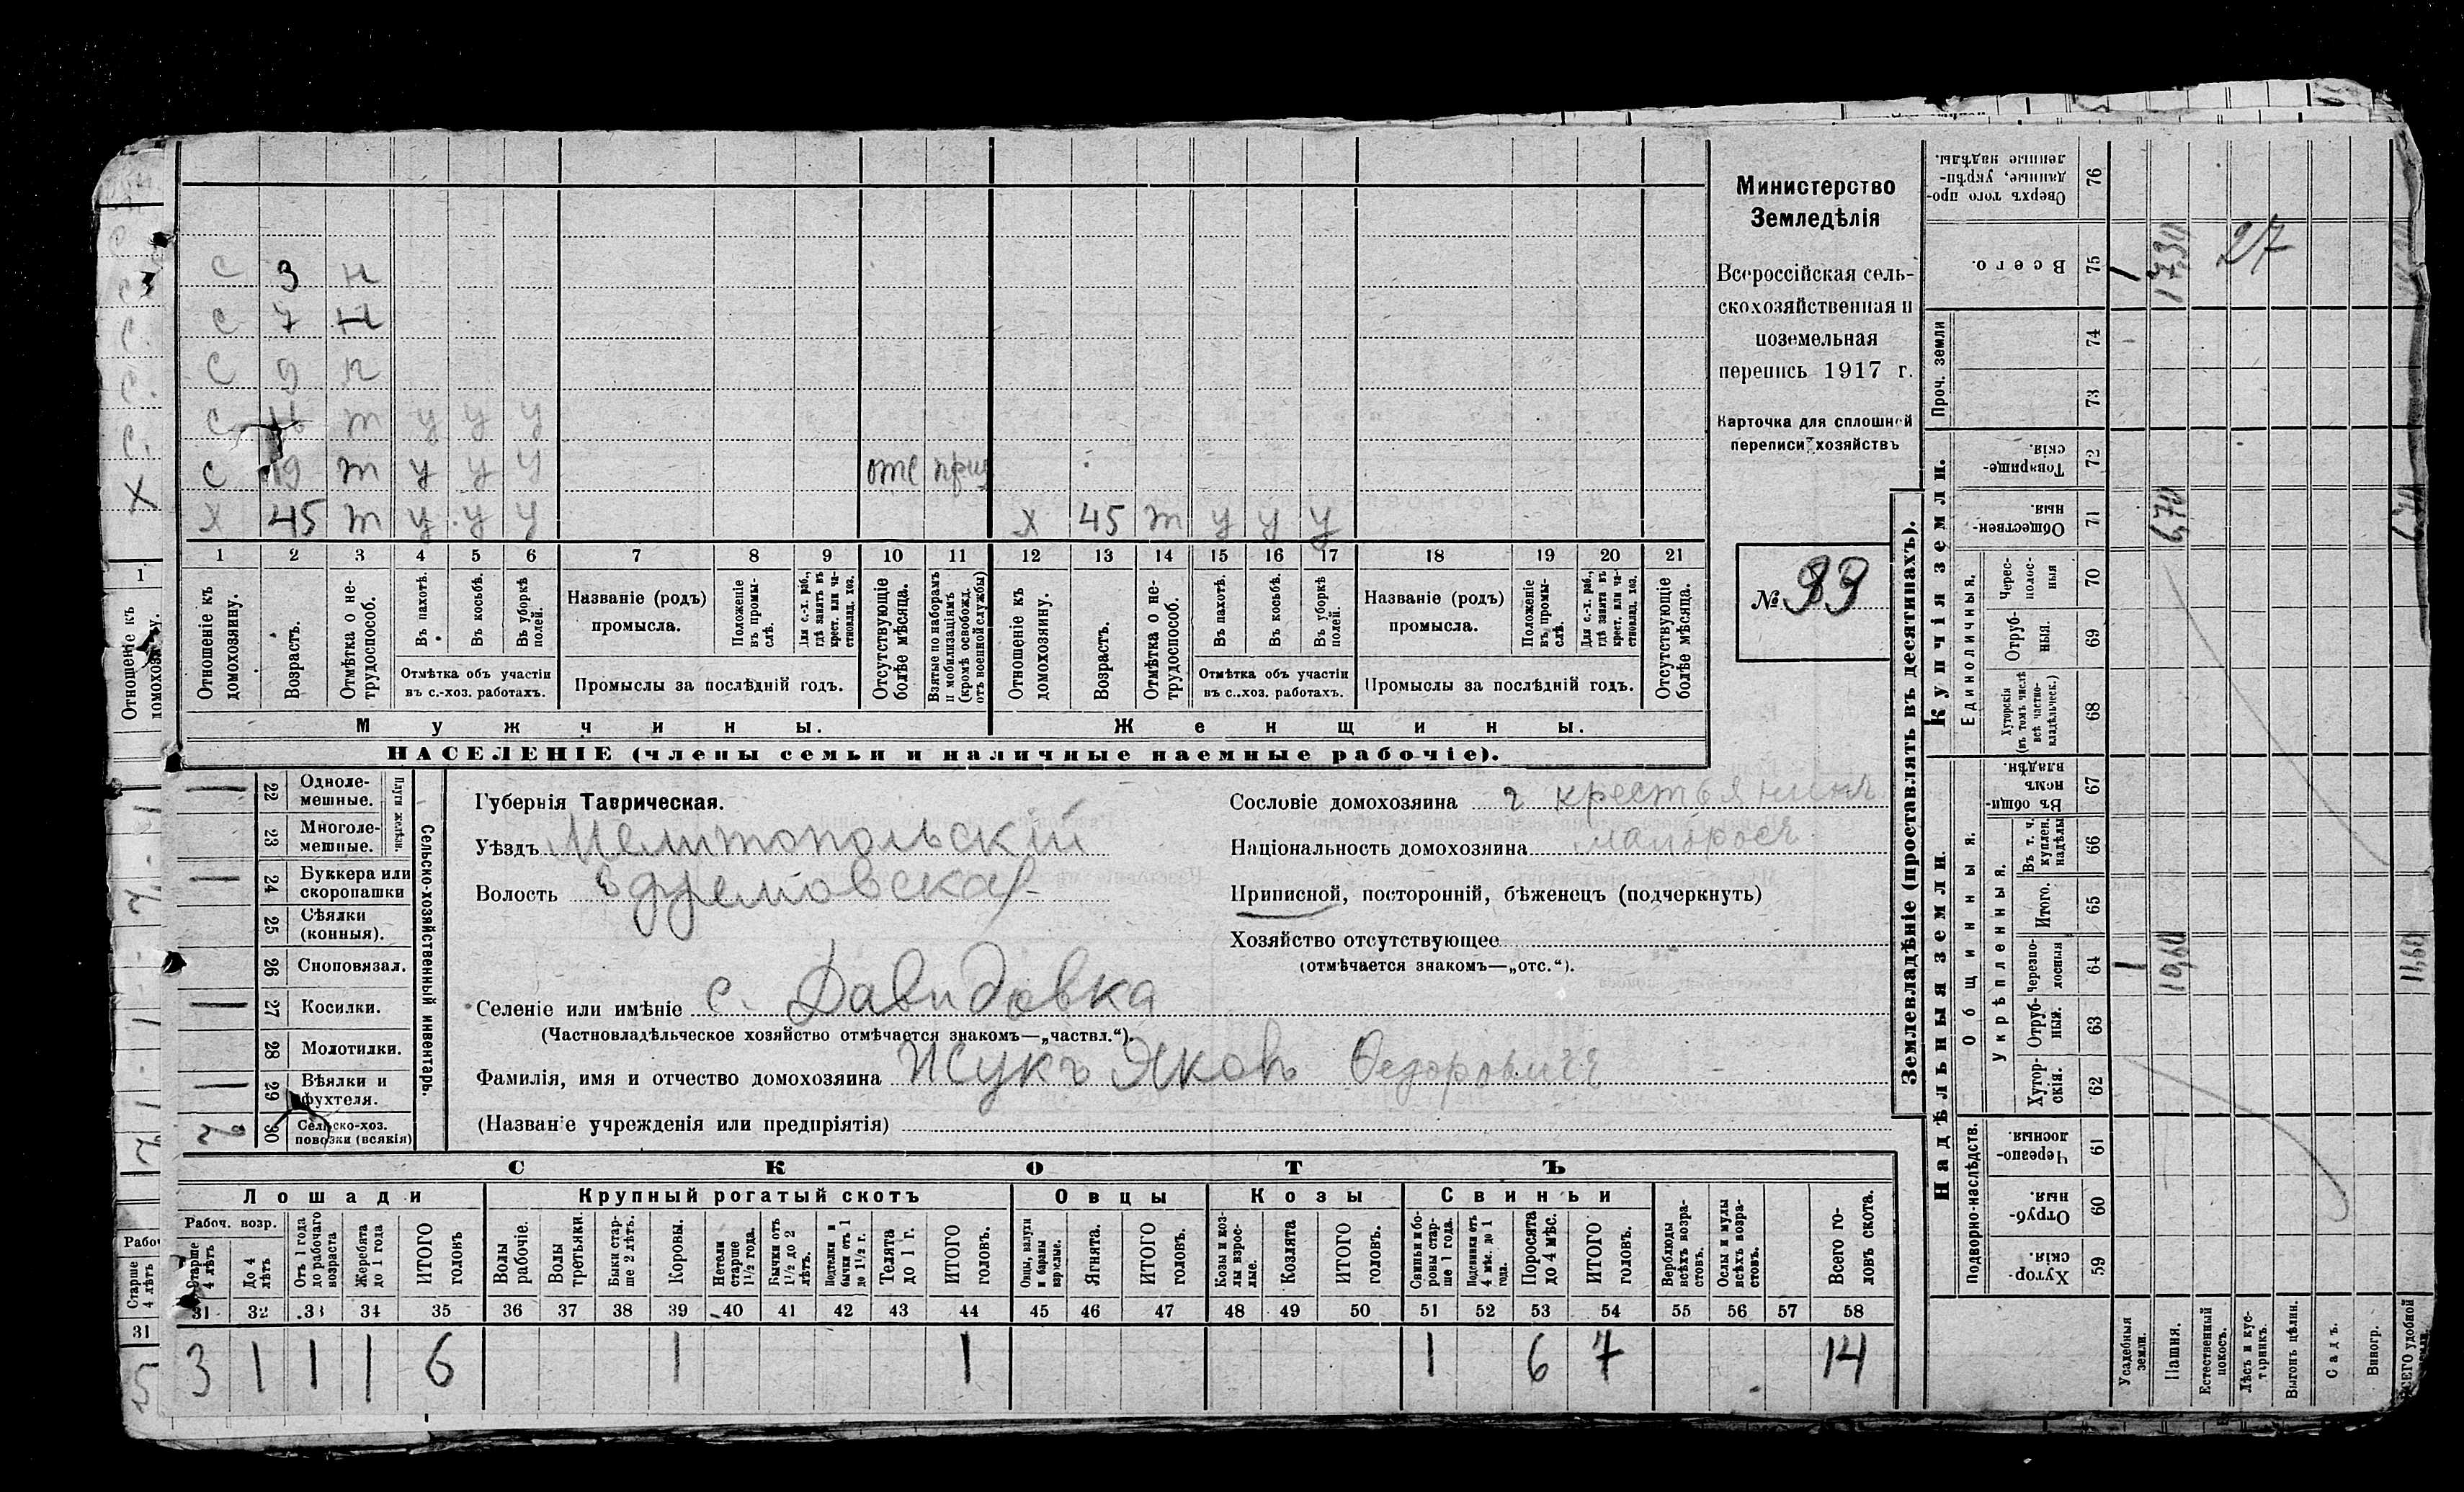 С 3 н
С 7 н
С 9 н
С т у у у
С 19 т у у у отс приз
Х 45 т у у у Х 45 т у у у
1 2 3 4 5 6 7 8 9 10 11 12 13 14 15 16 17 18 19 20 21
Отношеніе къ домохозяину.
Возрастъ.
Отмѣтка о нетрудоспособ.
Въ пахотѣ.
Въ косьбѣ.
Въ уборкѣ полей.
Отмѣтка объ участіи
въ с.-хоз. работахъ.
Названіе (родъ)
промысла.
Положеніе въ промыслѣ.
Для с.-х. раб., гдѣ занятъ въ крест. или частновлад. хоз.
Промыслы за послѣдній годъ.
Отсутствующіе болѣе мѣсяца.
Взятые по наборамъ и мобилизаціямъ (кромѣ освобожд. отъ военной службы)
Отношеніе къ домохозяину.
Возрастъ.
Отмѣтка о нетрудоспособ.
Въ пахотѣ.
Въ косьбѣ.
Въ уборкѣ полей.
Отмѣтка объ участіи
въ с.-хоз. работахъ.
Названіе (родъ)
промысла.
Положеніе въ промыслѣ.
Для с.-х. раб., гдѣ занята въ крест. или частновлад. хоз.
Промыслы за послѣдній годъ.
Отсутствующіе болѣе мѣсяца.
Мужчины. Женщины.
НАСЕЛЕНІЕ (члены семьи и наличные наемные рабочіе).
Министерство
Земледѣлія
Всероссійская сель-
скохозяйственная и
поземельная
перепись 1917 г.
Карточка для сплошной
переписи хозяйствъ
№ 99
Сельско-хозяйственный инвентарь.
Плуги желѣзн.
1 22 Однолемешные.
23 Многолемешные.
1 24 Буккера или скоропашки
25 Сѣялки (конныя).
26 Сноповязал.
1 27 Косилки.
28 Молотилки.
1 29 Вѣялки и фухтеля.
30 Сельско-хоз. повозки (всякія)
Губернія Таврическая.
Уѣздъ Мелитопольскій
Волость
Селеніе или имѣніе с. Давидовка
(Частновладѣльческое хозяйство отмѣчается знакомъ—„частвл.“).
Фамилія, имя и отчество домохозяина Жукъ Яковъ Федоровичъ
(Названіе учрежденія или предпріятія)
Сословіе домохозяина крестьянинъ
Національность домохозяина малоросъ
Приписной, посторонній, бѣженецъ (подчеркнуть)
Хозяйство отсутствующее
(отмѣчается знакомъ—„отс.“).
СКОТЪ
Лошади Крупный рогатый скотъ Овцы Козы Свиньи
Рабоч. возр.
Старше 4 лѣтъ
До 4 лѣтъ
Отъ 1 года до рабочаго возраста
Жеребята до 1 года
ИТОГО головъ
Волы рабочіе.
Волы третьяки.
Быки старше 2 лѣтъ.
Коровы.
Нетели старше 1½ года.
Бычки отъ 1½ до 2 лѣтъ.
Подтелки и бычки отъ 1 до 1½ г.
Телята до 1 г.
ИТОГО головъ.
Овцы, валухи и бараны взрослые.
Ягнята.
ИТОГО головъ.
Козы и козлы взрослые.
Козлята
ИТОГО головъ.
Свиньи боровы старше 1 года.
Подсвинки отъ 4 мѣс. до 1 года.
Поросята до 4 мѣс.
ИТОГО головъ.
Верблюды всѣхъ возрастовъ.
Ослы и мулы всѣхъ возрастовъ.
Всего головъ скота.
31 32 33 34 35 36 37 38 39 40 41 42 43 44 45 46 47 48 49 50 51 52 53 54 55 56 57 58
3 1 1 1 6 1 1 1 6 7 14
Землевладѣніе (проставлять въ десятинахъ).
Надѣльныя земли. Купчія земли. Проч. земли
Подворно-наслѣдств. Общинныя. Укрѣпленныя. Единоличныя.
Хуторскія. 59
Отрубныя. 60
Черезполосныя. 61
Хуторскія. 62
Отрубный. 63
Черезполосныя 64
Итого. 65
Въ т. ч. куплен. надѣлы 66
Въ общинномъ владѣн. 67
Хуторскія (въ томъ числѣ всѣ частновладѣльческ.) 68
Отрубныя. 69
Черезполосныя 70
Общественныя 71
Товарищескія. 72
73
74
Всего. 75
Сверхъ того проданные, укрѣпленные надѣлы. 76
Усадебныя земли. 1 1
Пашня. 10,60 6,70 17,30
Естественный покосъ.
Лѣсъ и кустарникъ. 27
Выгонъ цѣлин.
Садъ.
Виногр.
ВСЕГО удобной 11,60 6,70
Отношеніе къ домохозяину.
Старше 4 лѣтъ
31
5